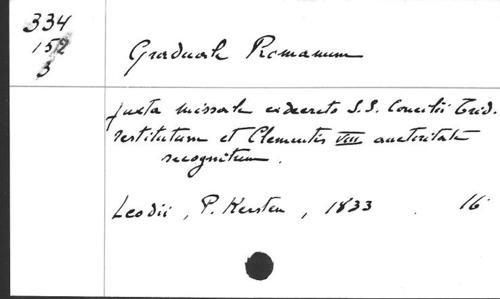 334
152
3
Graduale Romanum
juxta missale ex decreto S.S. Concilii Trid.
restitutum et Clementis VIII auctoritate
recognitum.
Leodii, P. Kersten, 1833 . 16°